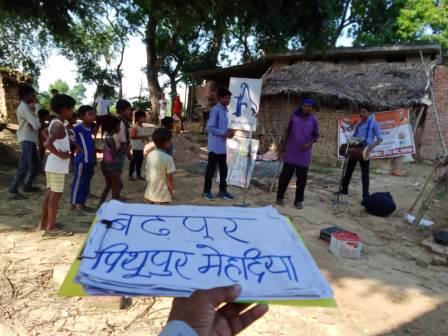 बढपुर
पिथुपुर मेहदिया